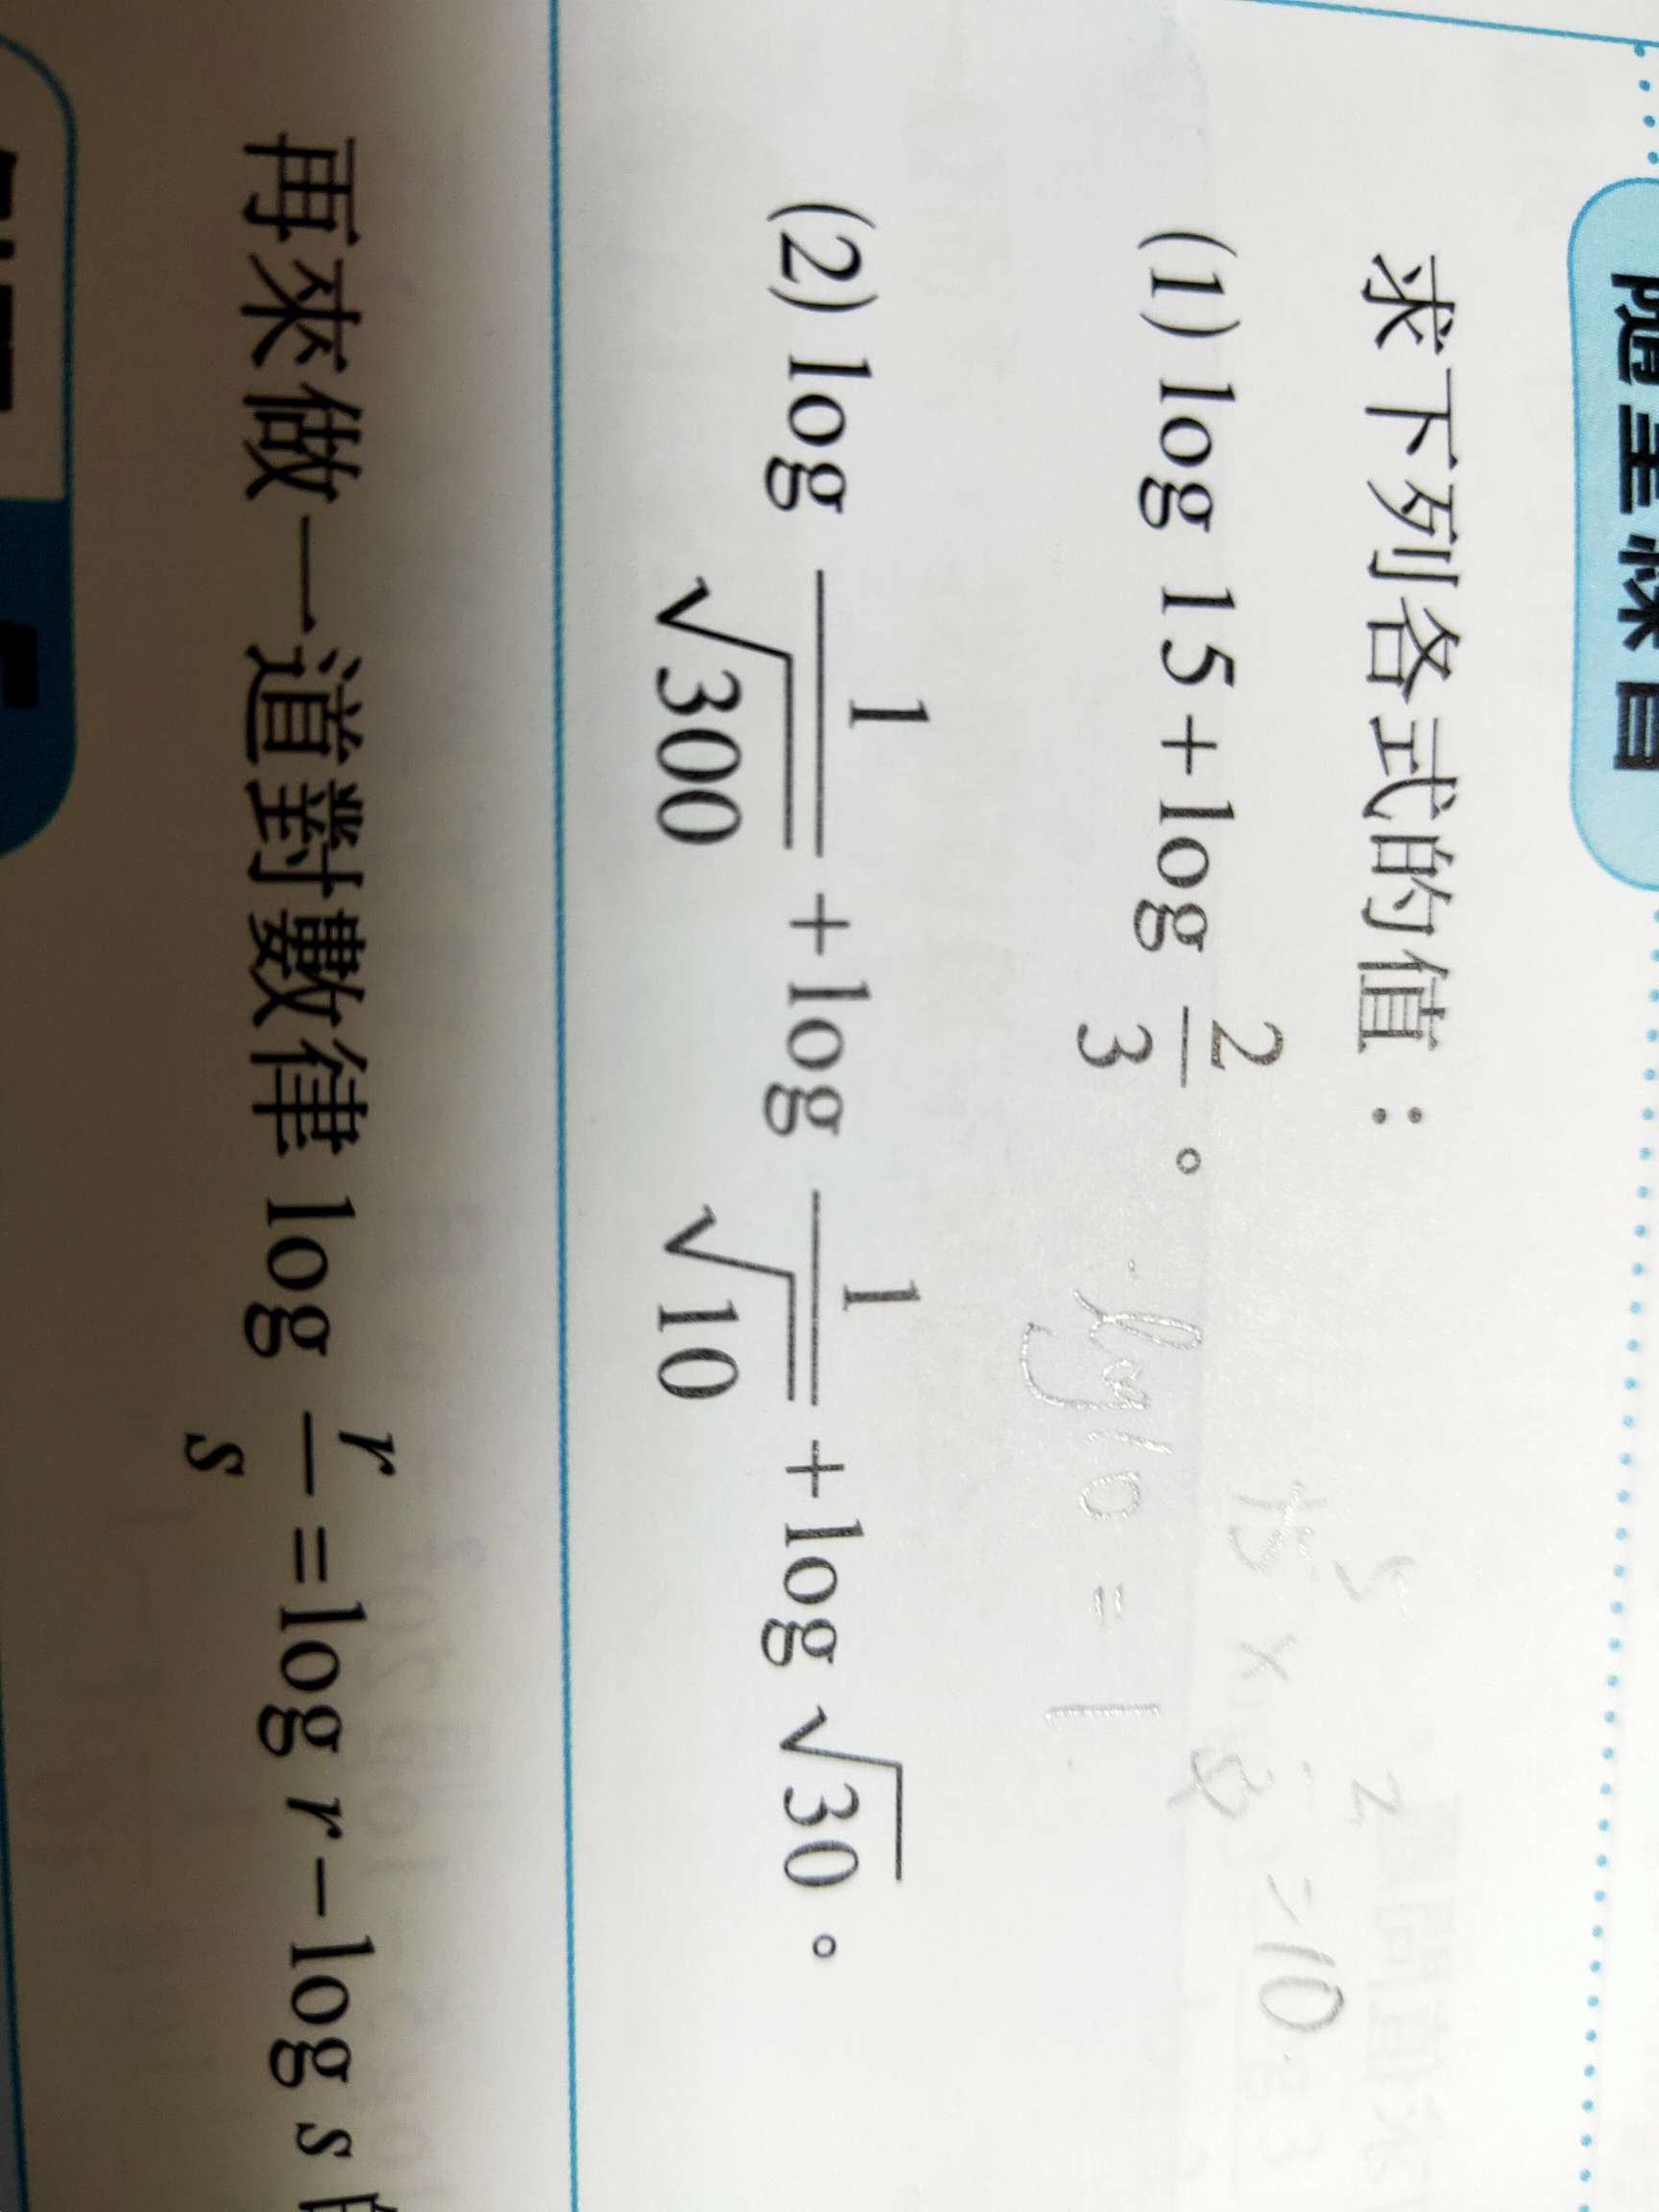 隨堂練習
求下列各式的值：
(1) log 15 + log 2/3 。
15 × 2/3 = 10
log 10 = 1
(2) log 1/√300 + log 1/√10 + log √30 。
再來做一道對數律 log r/s = log r − log s